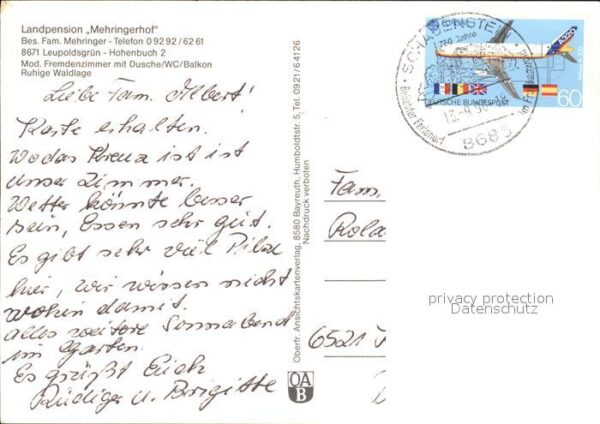 Landpension „Mehringerhof"
Bes. Fam. Mehringer - Telefon 0 92 92 / 62 61
8671 Leupoldsgrün - Hohenbuch 2
Mod. Fremdenzimmer mit Dusche/WC/Balkon
Ruhige Waldlage
Liebe Fam. Albert!
Karte erhalten.
Wo das Kreuz ist ist
unser Zimmer.
Wetter könnte besser
sein, Essen sehr gut.
Es gibt sehr viel Pilze
hier, wir wissen nicht
wohin damit.
alles weitere Sonnabend
im Garten.
Es grüßt Euch
Rüdiger u. Brigitte
Oberfr. Ansichtskartenverlag, 8580 Bayreuth, Humboldtstr. 5, Tel. 0921/64126
Nachdruck verboten
OA
B
SCHAUENSTEIN
750 Jahre
Beliebter Ferienort
im
8685
DEUTSCHE BUNDESPOST
60
Fam.
Rola
6521
privacy protection
Datenschutz